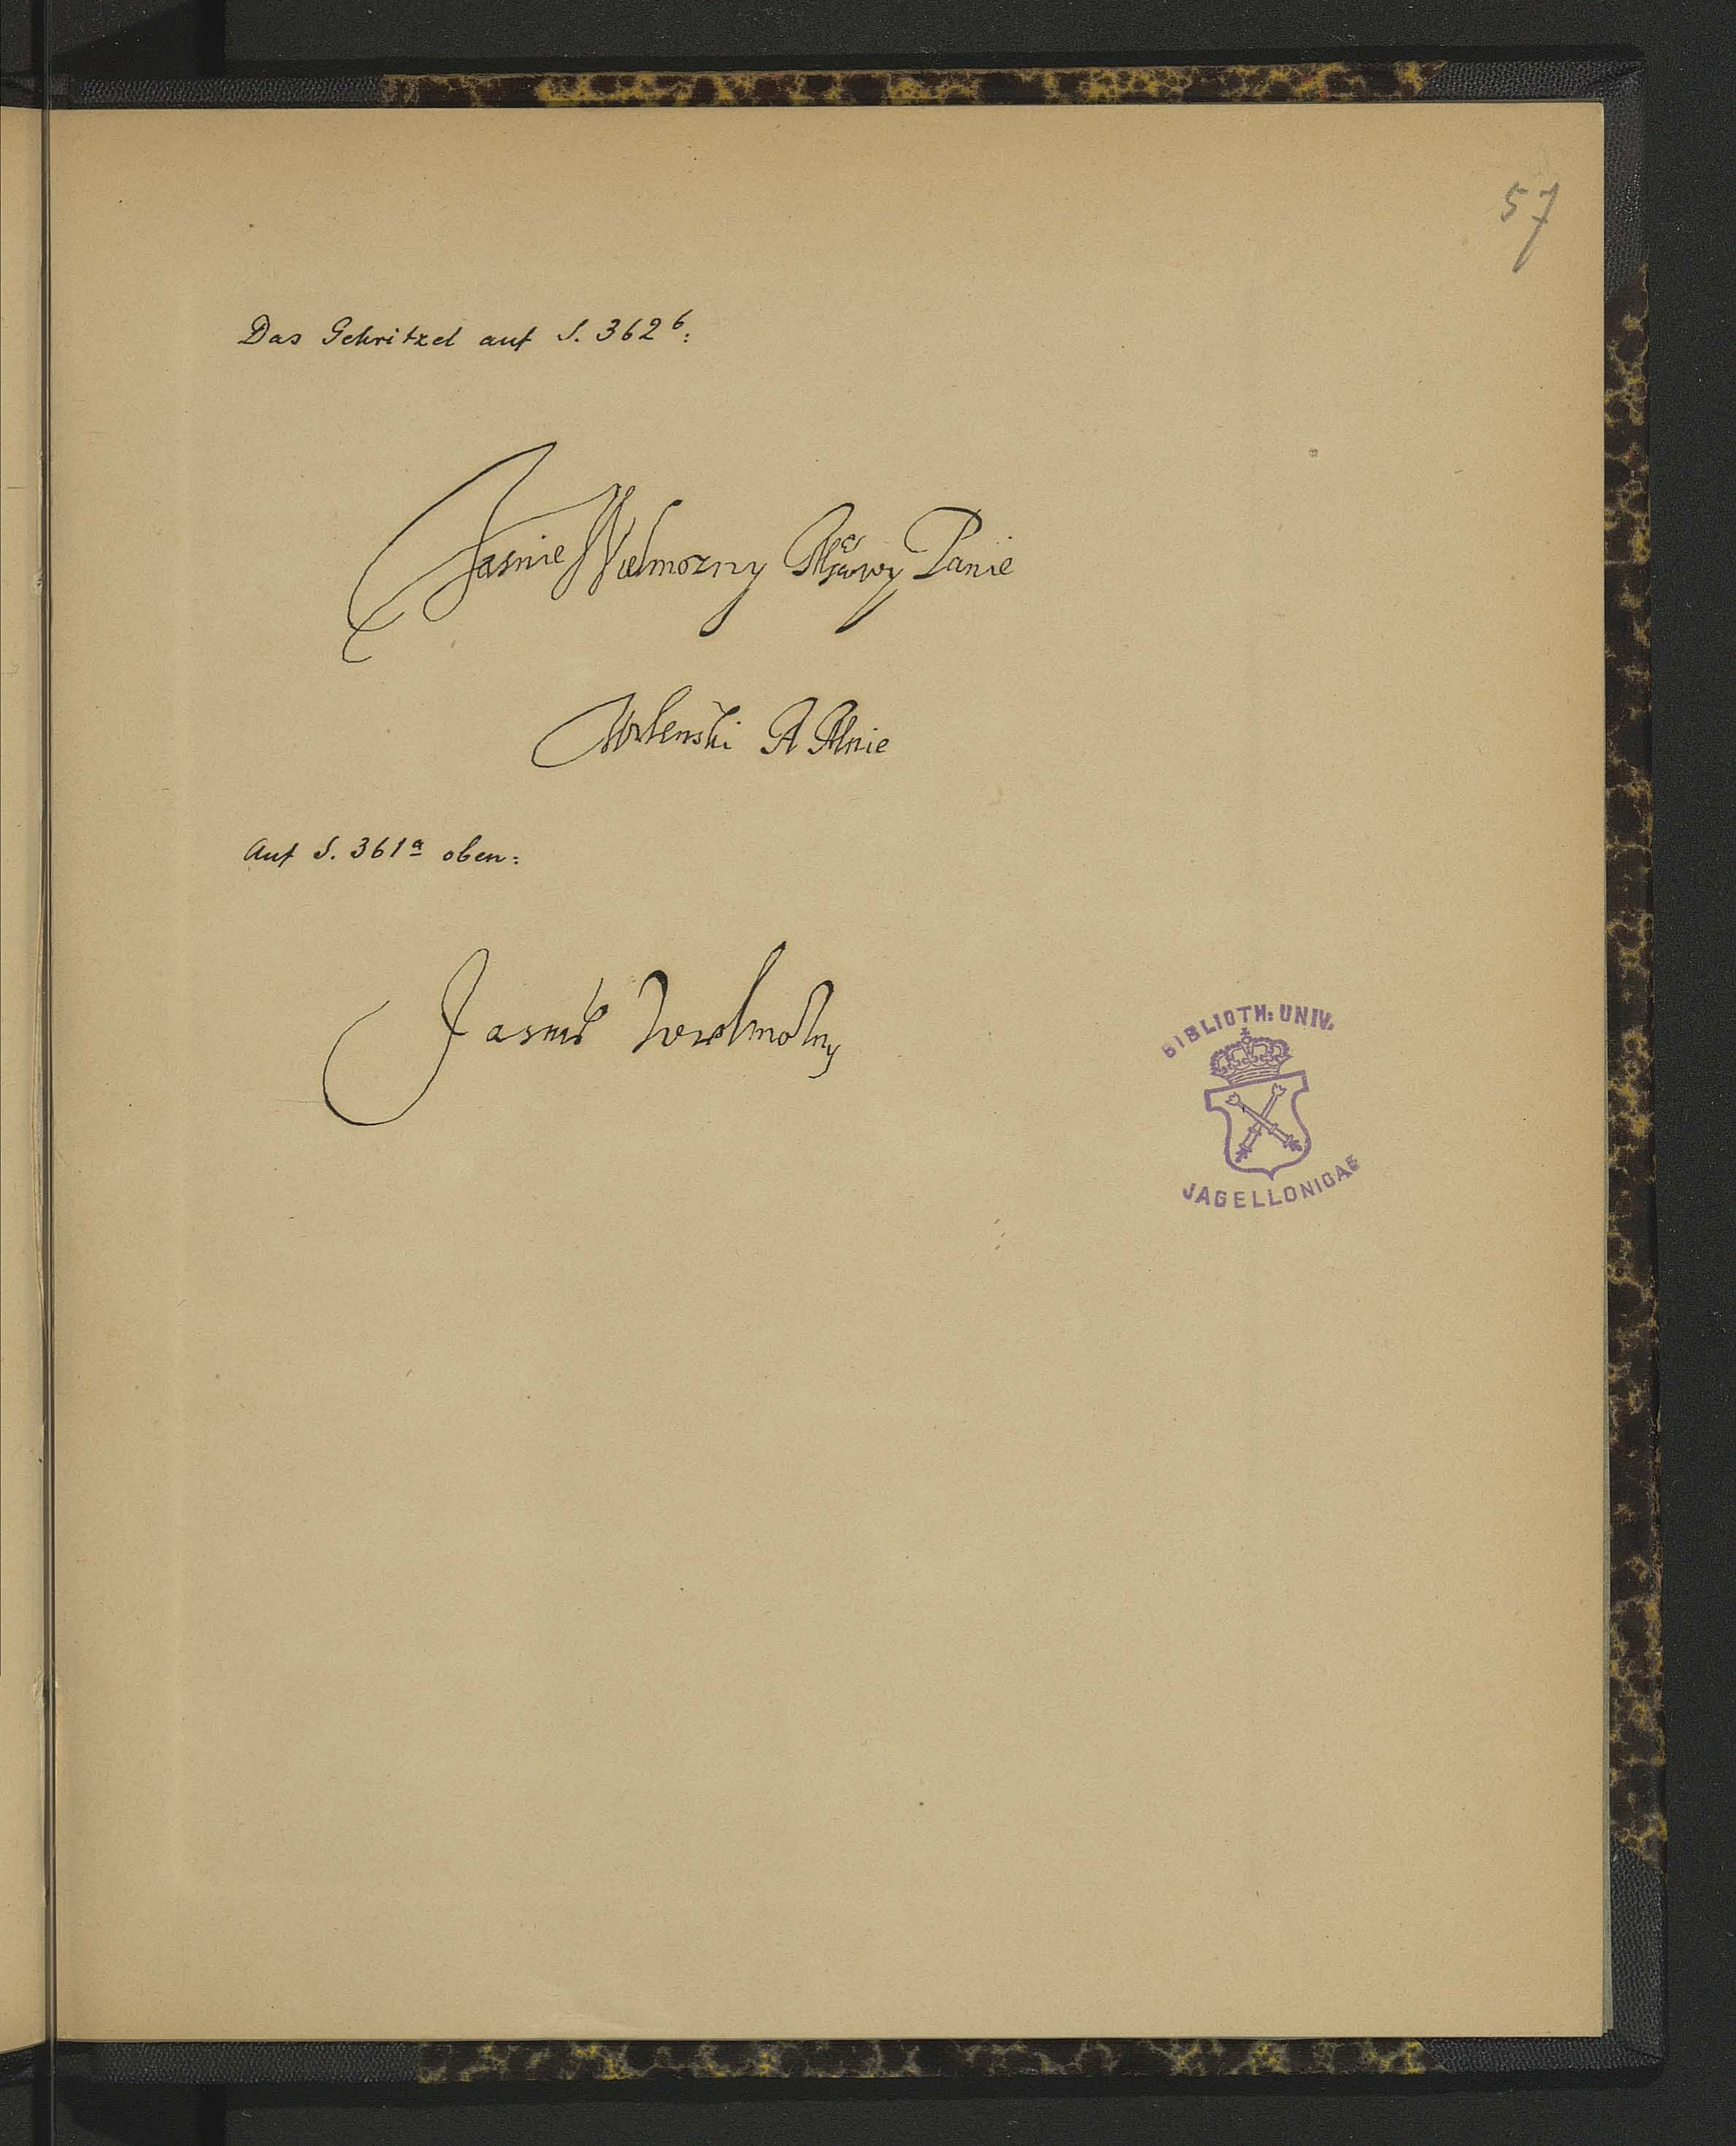 57
Das Gekritzel auf S. 362b:
Jasnie Wielmozny Panie
A
Auf S. 361a oben:
Jasnie Wielmozny
BIBLIOTH: UNIV.
JAGELLONICAE